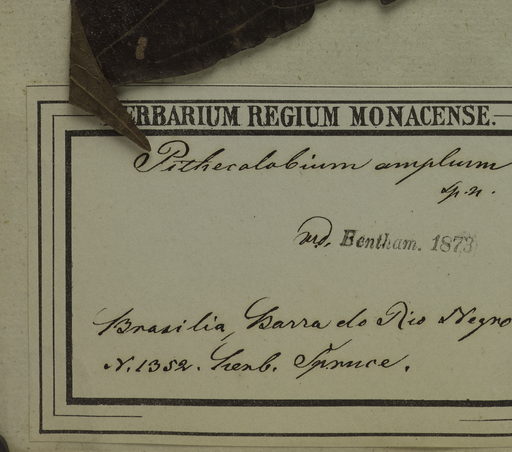 ERBARIUM REGIUM MONACENSE.
Pithecolobium amplum
sp. n.
Bentham. 1873
Brasilia, Barra do Rio Negro
N. 1352. herb. Spruce.